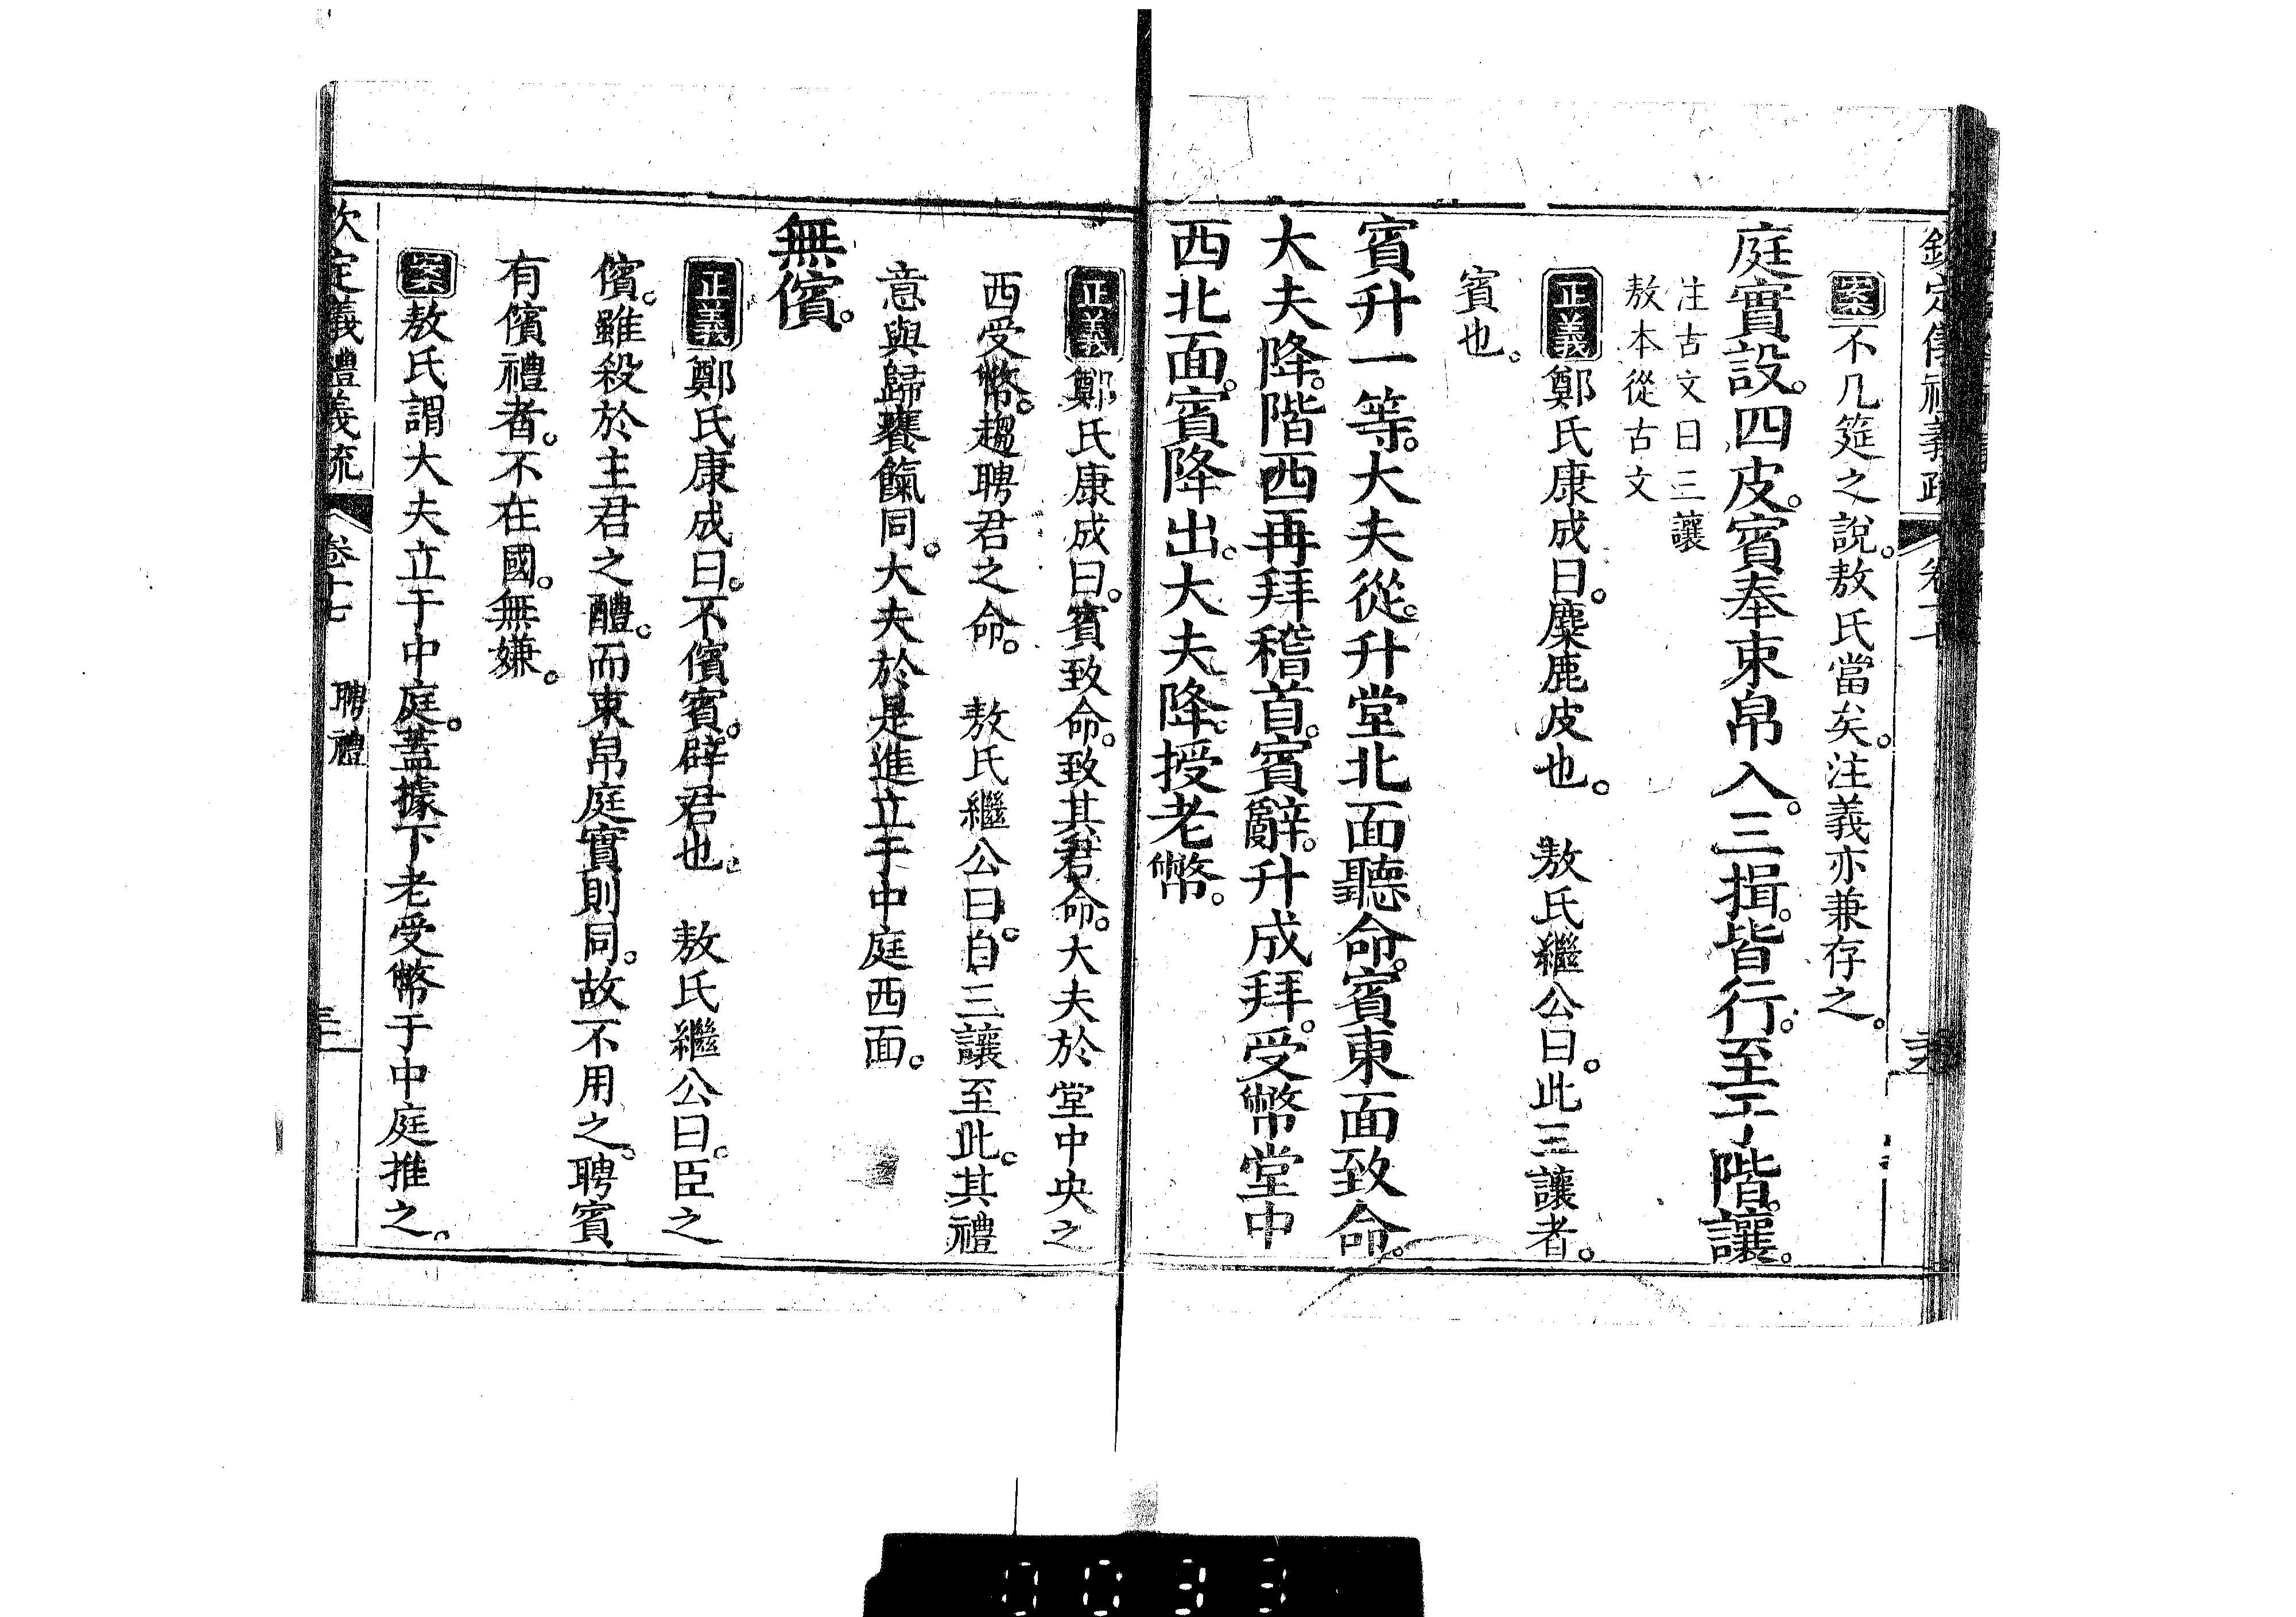 欽定儀禮義疏 卷十七
案不几筵之說。敖氏當矣。注義亦兼存之。
庭實設。四皮。賓奉束帛入。三揖。皆行。至于階。讓。
注古文曰三讓
敖本從古文
正義鄭氏康成曰。麋鹿皮也。 敖氏繼公曰。此三讓者。
賓也。
賓升一等。大夫從。升堂北面聽命。賓東面致命。
大夫降。階西再拜稽首。賓辭。升成拜。受幣堂中
西北面。賓降出。大夫降。授老幣。
正義鄭氏康成曰。賓致命。致其君命。大夫於堂中央之
西受幣。趨聘君之命。 敖氏繼公曰。自三讓至此。其禮
意與歸饔餼同。大夫於是進立于中庭西面。
無儐。
正義鄭氏康成曰。不儐賓。辟君也。 敖氏繼公曰。臣之
儐。雖殺於主君之醴。而束帛庭實則同。故不用之。聘賓
有儐禮者。不在國。無嫌。
案敖氏謂大夫立于中庭。蓋據下老受幣于中庭推之。
欽定義禮義疏 卷十七 聘禮
0033